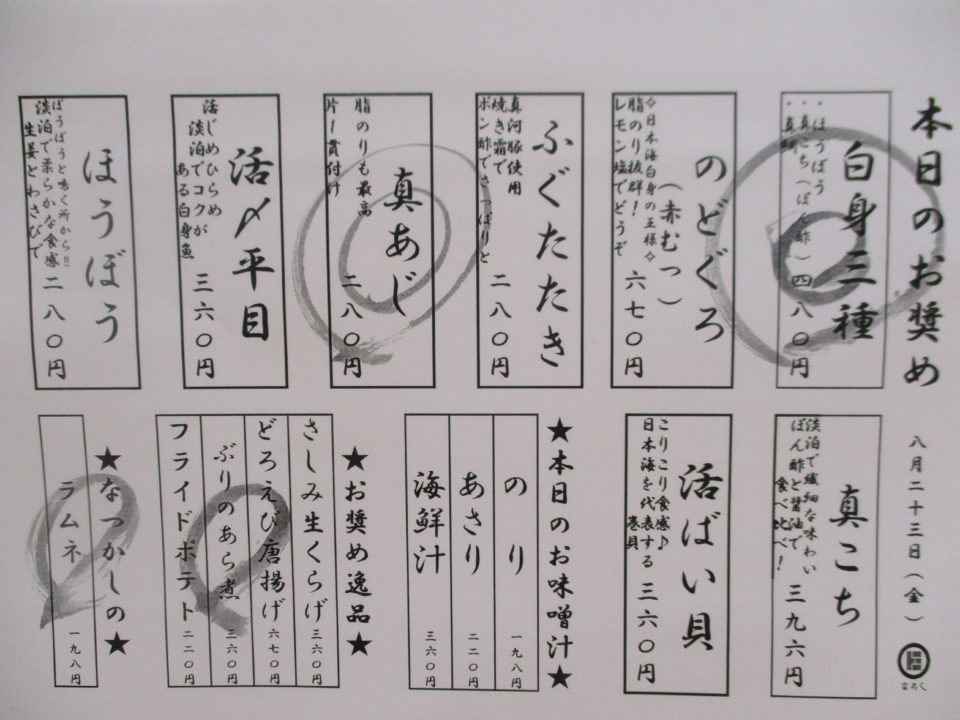 本日のお奨め
八月二十三日(金)
白身三種
・ほうぼう
・真こち(ぽん酢)
・真鯛
四八〇円
のどぐろ
(赤むつ)
☆日本海白身の王様☆
脂のり抜群!
レモン塩でどうぞ
六七〇円
ふぐたたき
真河豚使用
焼き霜で
ポン酢でさっぱりと
二八〇円
真あじ
脂のりも最高
片1貫付け
二八〇円
活〆平目
活じめひらめ
淡泊でコクが
ある白身魚
三六〇円
ほうぼう
ぼうぼうと鳴く所から!!
淡泊で柔らかな食感
生姜とわさびで
二八〇円
真こち
淡泊で繊細な味わい
ぽん酢と醤油で
食べ比べ!
三九六円
活ばい貝
こりこり食感♪
日本海を代表する
巻貝
三六〇円
★本日のお味噌汁★
のり 一九八円
あさり 二二〇円
海鮮汁 三六〇円
★お奨め逸品★
さしみ生くらげ 三六〇円
どろえび唐揚げ 六七〇円
ぶりのあら煮 三六〇円
フライドポテト 二二〇円
★なつかしの★
ラムネ 一九八円